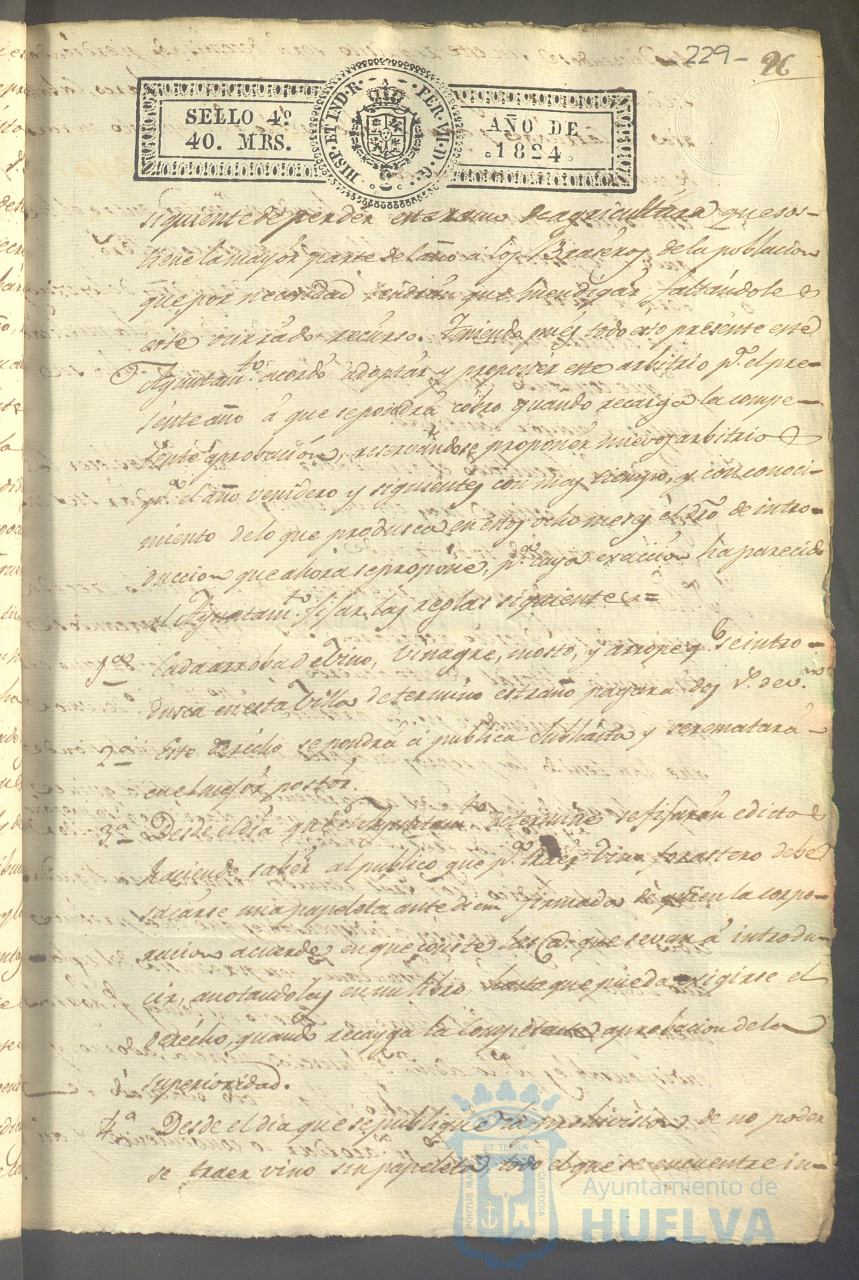 -229- 96
SELLO 4º
40. MRS.
HISP. ET IND. R. FER. VII D. G.
AÑO DE
1824.
siguiente depender este ramo de agricultura que sos-
tiene la mayor parte del año a los Braseros de la poblacion
que por necesidad tendran que mendigar faltandole
este recurso. Teniendo pues todo esto presente este
Ayuntamto. acordó adoptar y proponer este arbitrio pª. el pre-
sente año á que se pondrá cobro quando recaiga la compe-
tente aprobacion, reservandose proponer nuevos arbitrios
pª. el año venidero y siguientes con mas tiempo, y con conoci-
miento de lo que produsca en estos ocho meses el dro. de intro-
duccion que ahora se propone, pª. cuya exaccion ha parecido
al Ayuntamto. fijar las reglas siguientes=
1ª Cada arroba de Vino, Vinagre, mosto, y arrope q. se intro-
dusca en esta Villa de termino estraño pagará dos rs. de vn.
2ª Este derecho se pondrá á publica subhasta y se rematará
en el mejor postor.
3ª Desde el dia que el Ayuntamto. determine se fijarán edictos
haciendo saber al publico que pª. traer vino forastero debe
sacarse una papeleta ante diem firmada de quien la corpo-
racion acuerde, en que conste las @. que se van á introdu-
cir, anotandolas en un libro hasta que pueda exigirse el
derecho, quando recayga la competente aprobacion de la
superioridad.
4ª Desde el dia que se publique la prohivision de no poder
se traer vino sin papeleta, todo el que se encuentre in-
PORTUS MARIS ET TERRAE CUSTODIA
Ayuntamiento de
HUELVA